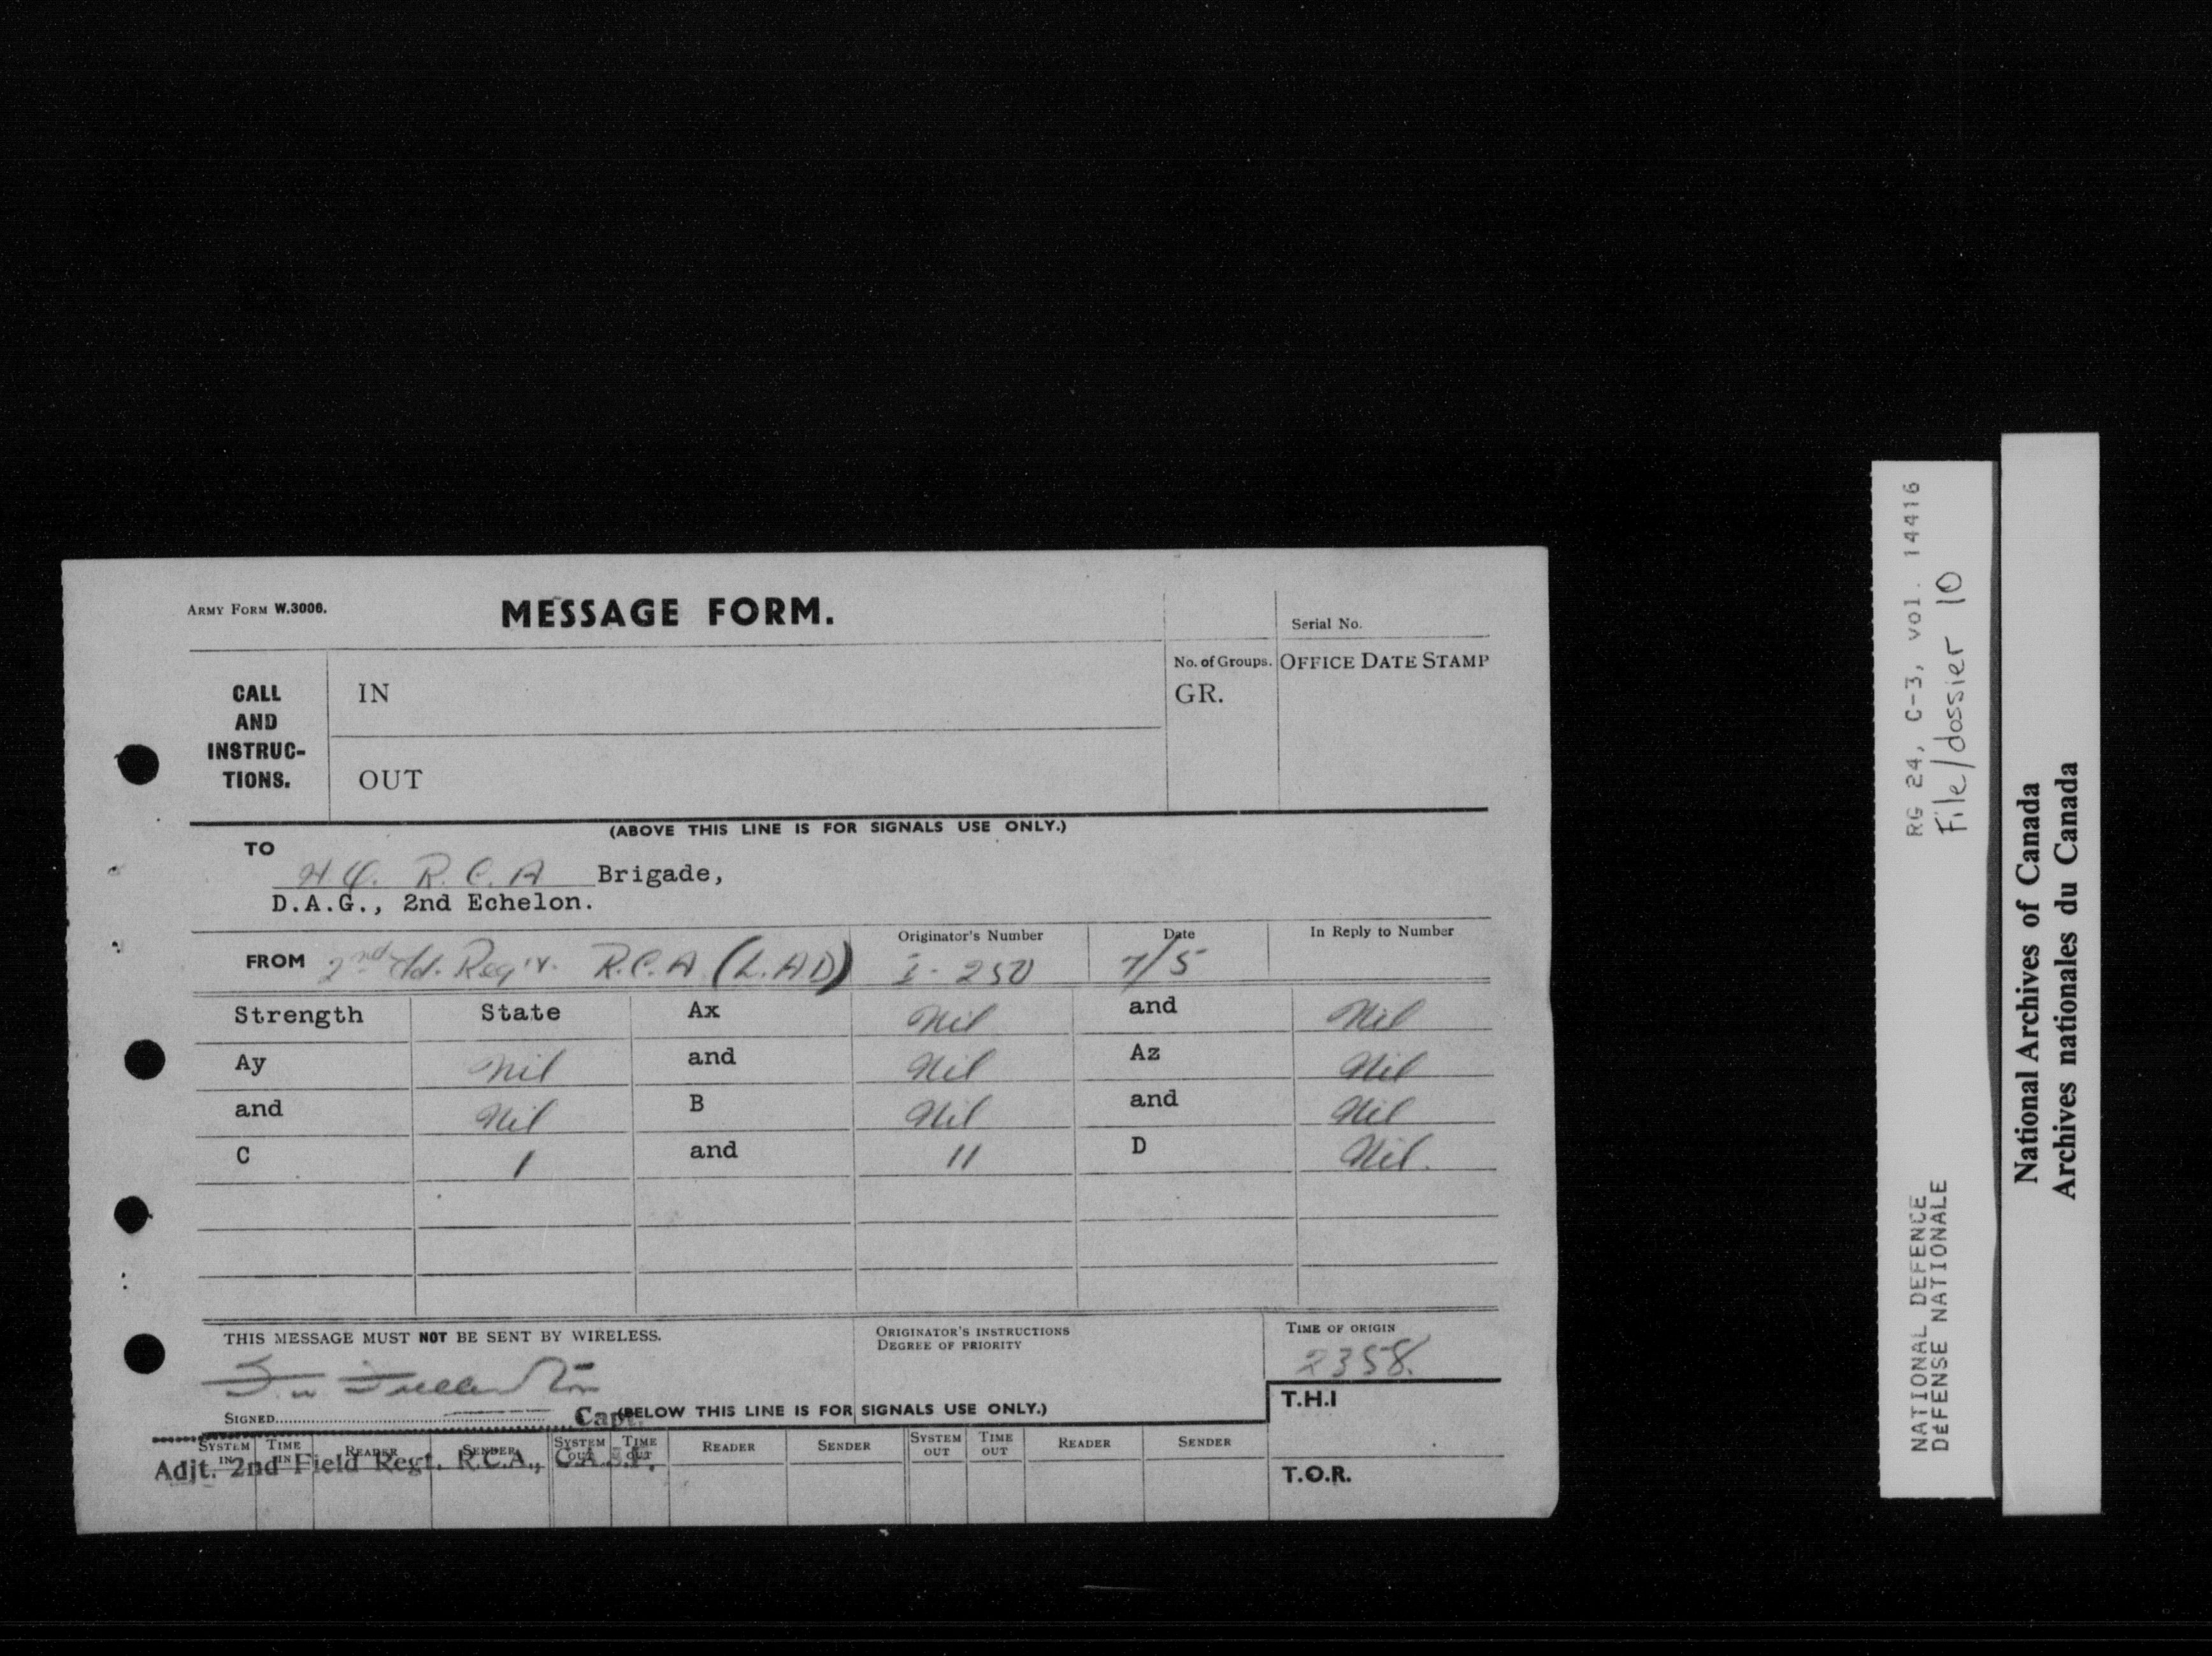 ARMY FORM W.3006.
MESSAGE FORM.
Serial No.
CALL AND INSTRUC-TIONS.
IN
No. of Groups.
GR.
OFFICE DATE STAMP
OUT
(ABOVE THIS LINE IS FOR SIGNALS USE ONLY.)
TO
H.Q. R.C.A Brigade,
D.A.G., 2nd Echelon.
FROM 2nd Fd. Reg't. R.C.A (L.A.D)
Originator's Number
I-250
Date
7/5
In Reply to Number
Strength State Ax Nil and Nil
Ay Nil and Nil Az Nil
and Nil B Nil and Nil
C 1 and 11 D Nil.
THIS MESSAGE MUST NOT BE SENT BY WIRELESS.
ORIGINATOR'S INSTRUCTIONS
DEGREE OF PRIORITY
TIME OF ORIGIN
2358.
SIGNED Capt.
(BELOW THIS LINE IS FOR SIGNALS USE ONLY.)
T.H.I
SYSTEM IN TIME IN READER SENDER SYSTEM OUT TIME OUT READER SENDER SYSTEM OUT TIME OUT READER SENDER
Adjt. 2nd Field Regt. R.C.A., C.A.S.F.
T.O.R.
RG 24, C-3, vol. 14416
File/dossier 10
NATIONAL DEFENCE
DÉFENSE NATIONALE
National Archives of Canada
Archives nationales du Canada